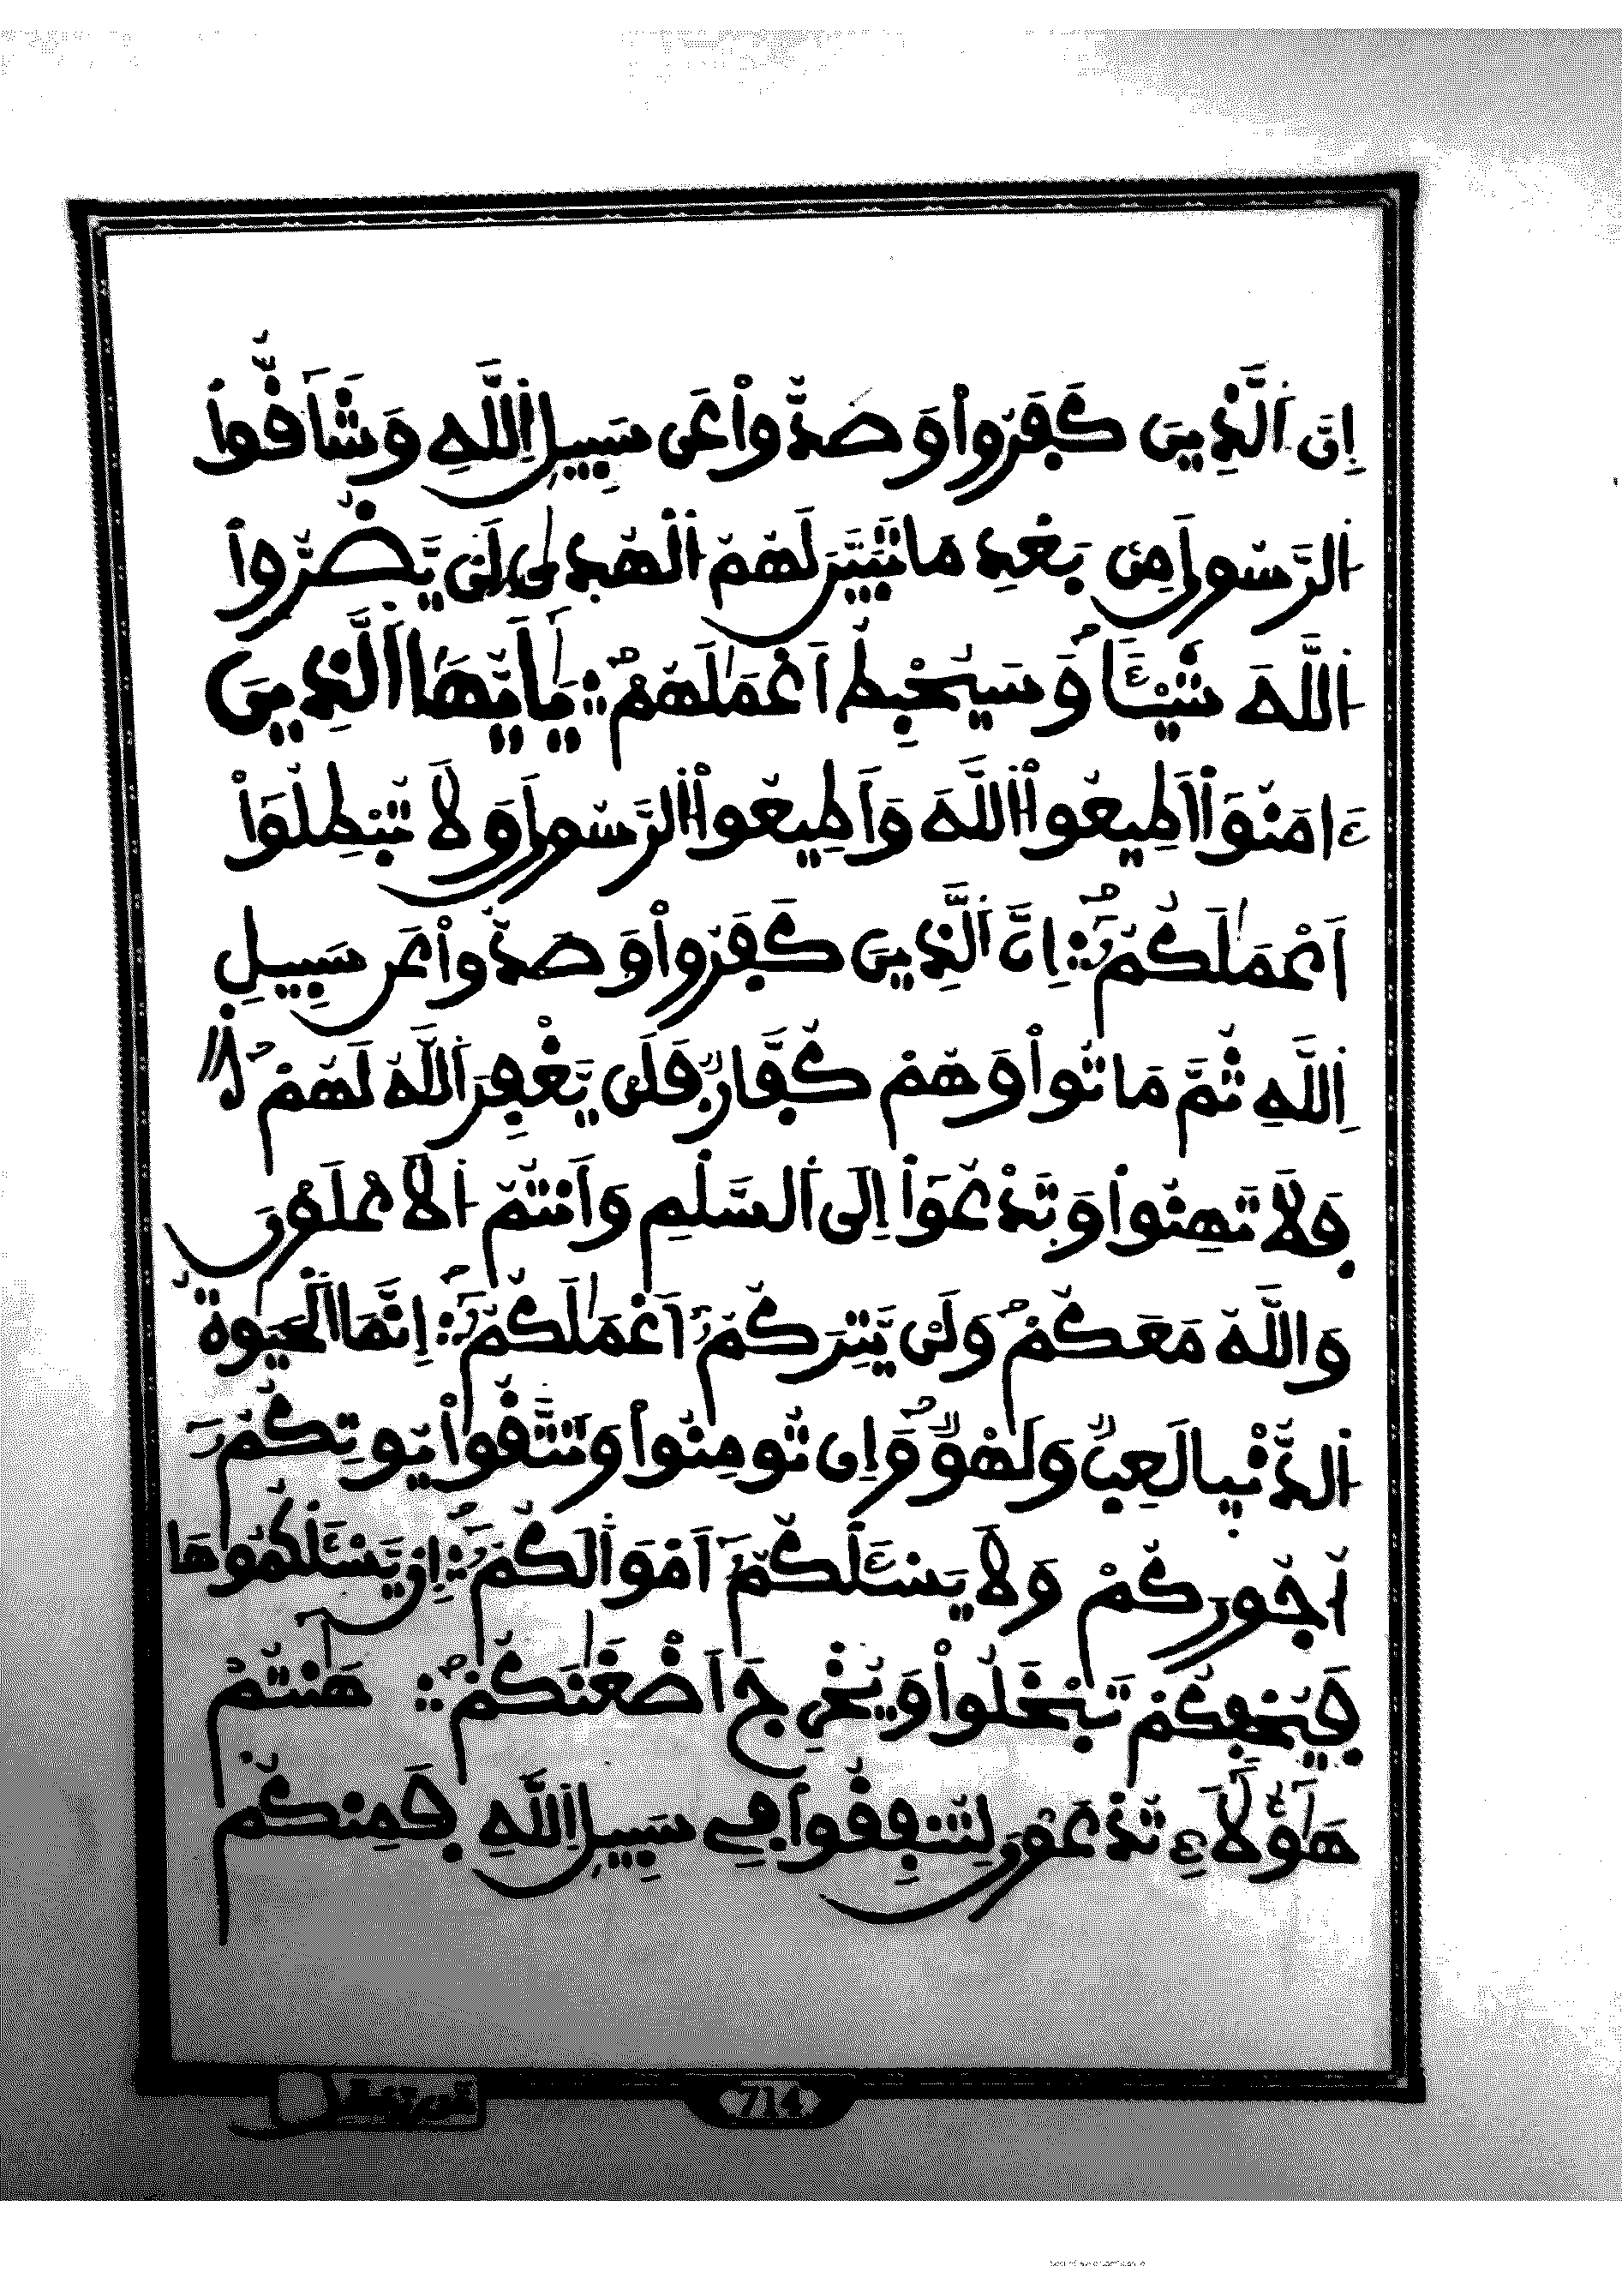 إِنَّ اَ۬لذِينَ كَفَرُواْ وَصَدُّواْ عَن سَبِيلِ اِ۬للَّهِ وَشَآقُّواْ
اُ۬لرَّسُولَ مِنۢ بَعْدِ مَا تَبَيَّنَ لَهُمُ اُ۬لْهُد۪ىٰ لَنْ يَّضُرُّواْ
اُ۬للَّهَ شَيْـٔاٗ وَسَيُحْبِطُ أَعْمَٰلَهُمْ يَٰٓأَيُّهَا اَ۬لذِينَ
ءَامَنُوٓاْ أَطِيعُواْ اُ۬للَّهَ وَأَطِيعُواْ اُ۬لرَّسُولَ وَلَا تُبْطِلُوٓاْ
أَعْمَٰلَكُمُۥٓ إِنَّ اَ۬لذِينَ كَفَرُواْ وَصَدُّواْ عَن سَبِيلِ
اِ۬للَّهِ ثُمَّ مَاتُواْ وَهُمْ كُفَّارٞ فَلَنْ يَّغْفِرَ اَ۬للَّهُ لَهُمْ
فَلَا تَهِنُواْ وَتَدْعُوٓاْ إِلَى اَ۬لسَّلْمِ وَأَنتُمُ اُ۬لَاعْلَوْنَ
وَاللَّهُ مَعَكُمْ وَلَنْ يَّتِرَكُمُۥٓ أَعْمَٰلَكُمُۥٓ إِنَّمَا اَ۬لْحَيَوٰةُ
اُ۬لدُّنْي۪ا لَعِبٞ وَلَهْوٞ وَإِن تُومِنُواْ وَتَتَّقُواْ يُوتِكُمُۥٓ
أُجُورَكُمْ وَلَا يَسْـَٔلْكُمُۥٓ أَمْوَٰلَكُمُۥٓ إِنْ يَّسْـَٔلْكُمُوهَا
فَيُحْفِكُمْ تَبْخَلُواْ وَيُخْرِجَ اَضْغَٰنَكُمْ هَٰٓأَنتُمْ
هَٰٓؤُلَآءِ تُدْعَوْنَ لِتُنفِقُواْ فِي سَبِيلِ اِ۬للَّهِ فَمِنكُم
714